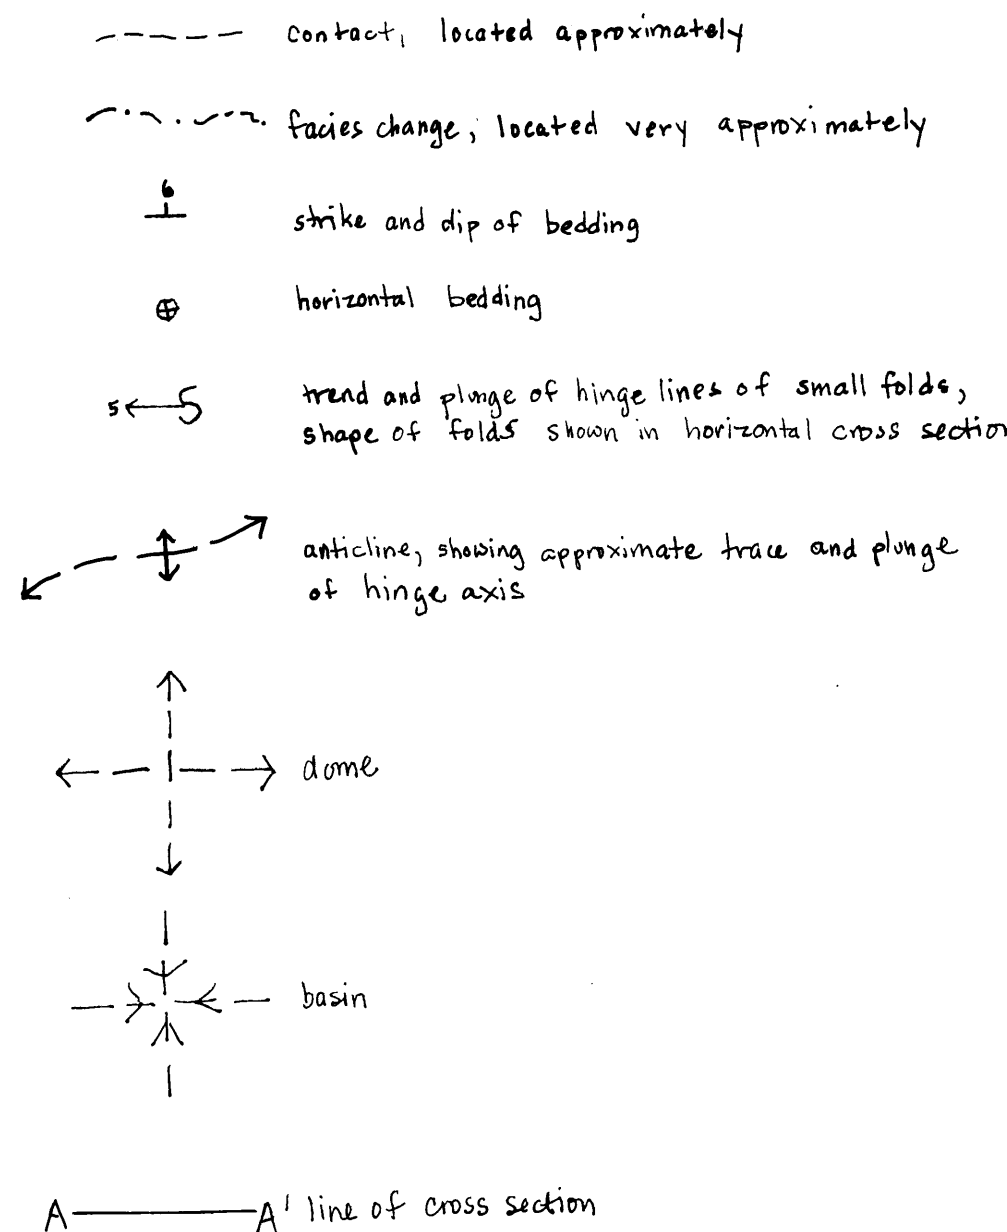 contact, located approximately
facies change, located very approximately
6
strike and dip of bedding
horizontal bedding
5 trend and plunge of hinge lines of small folds,
shape of folds shown in horizontal cross section
anticline, showing approximate trace and plunge
of hinge axis
dome
basin
A A' line of cross section